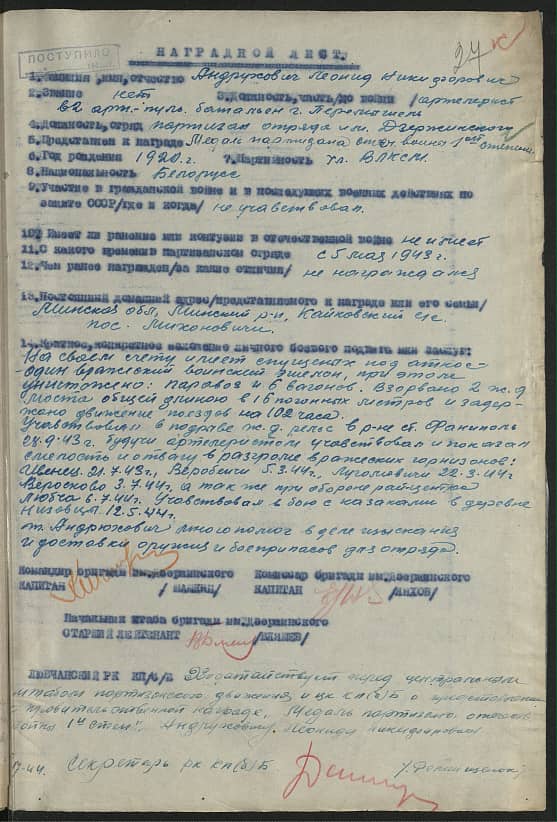 ПОСТУПИЛО
27
НАГРАДНОЙ ЛИСТ.
1.Фамилия ,имя,отчество Андрухович Леонид Никифорович
2.Звание нет 3.Должность,часть/до войны /артелерист
62 арт.-пуль. батальен г.
4.Должность,отряд партизан отряда им. Дзержинского
5.Представлен к награде Медаль партизана отеч. войны 1ой степени
6.Год рождения 1920 г. 7.Партийность чл. ВЛКСМ.
8.Национальность Белорусс
9.Участие в гражданской войне и в последующих военных действиях по
защите СССР/где и когда/ не учавствовал.
10. Имеет ли ранение или контузии в отечественной войне не имеет
11.С какого времени в партизанском отряде с 5 мая 1943 г.
12.Чем ранее награжден/за какие отличия/ не награждался
13.Постоянный домашний адрес/представляемого к награде или его семьи/
Минской обл, Минский р-н, Кайковский с/с.
пос.
14.Краткое,конкретное изложение личного боевого подвига или заслуг:
На своем счету имеет спущеных под откос-
один вражеский воинский эшелон, при этом
уничтожено: паровоз и 6 вагонов. Взорвано 2 ж.д
моста общей длиною в 16 погонных метров и задер-
жано движение поездов на 102 часа.
Участвовал в подрыве ж.д. релос в р-не ст. Фаниполь
9.43 г. будучи артелеристом учавствовал и показал
смелость и отвагу в разгроме вражеских гарнизонов:
Ивенец 21.7.43 г., Веробеичи 5.3.44 г., 22.3.44 г
Веросково 3.7.44 г, а так же при обороне райцентра
Любча 6.7.44 г. Учавствовал в бою с казаками в деревне
Низовцы 12.5.44 г.
т. Андрухович много помог в деле изыскания
и доставки оружия и боеприпасов для отряда.
Командир бригады им.Дзержинского Комиссар бригады им.Дзержинского
КАПИТАН / КАПИТАН /МИХОВ/
Начальник штаба бригады им.Дзержинского
СТАРШИЙ ЛЕЙТЕНАНТ
ЛЮБЧАНСКИЙ РК КП/б/Б Ходатайствует перед центральным
штабом партизанского движения и цк кп(б)Б о представлении
правительственной награде, Медаль партизана отечеств.
войны 1й степ". Андруховичу Леониду Никифоровичу
44. Секретарь рк кп(б)Б